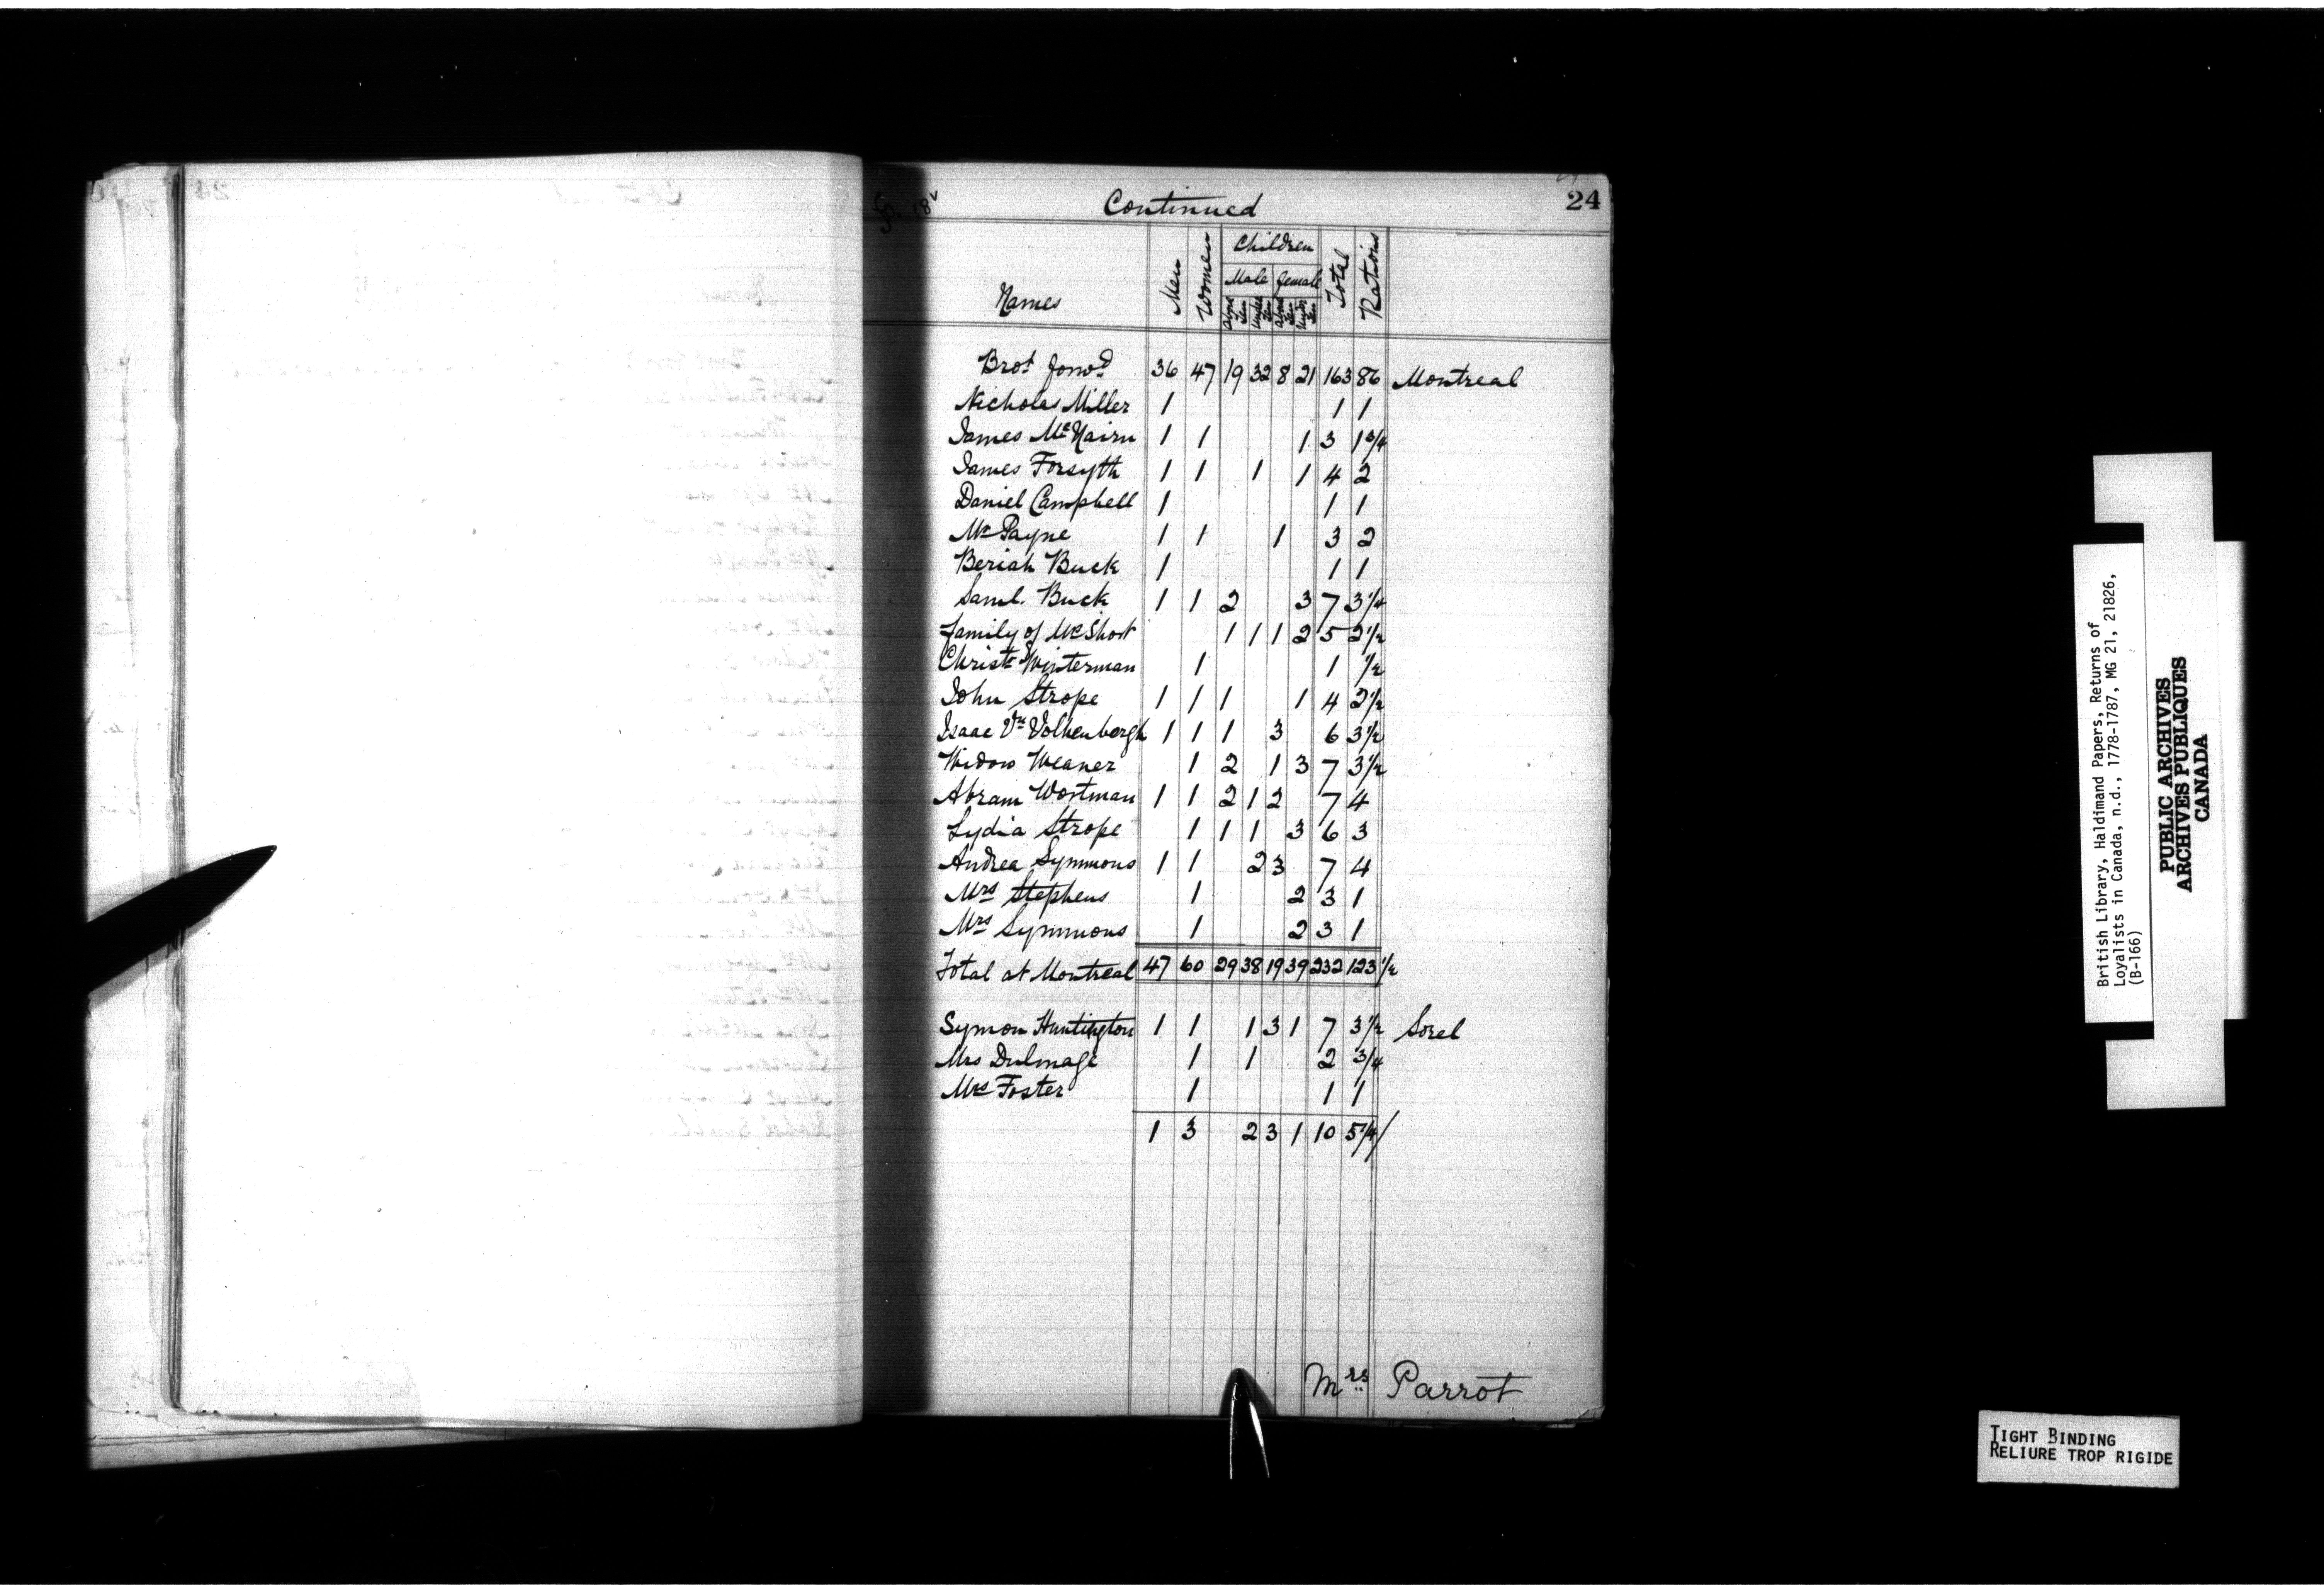 fo. 18v
Continued
24
Names Men Women Children Total Rations
Male Female
Above Ten Under Ten Above Ten Under Ten
Brot. Forwd. 36 47 19 32 8 21 163 86 Montreal
Nicholas Miller 1 1 1
James McNairn 1 1 1 3 1 3/4
James Forsyth 1 1 1 1 4 2
Daniel Campbell 1 1 1
Mr Payne 1 1 1 3 2
Beriah Buck 1 1 1
Saml. Buck 1 1 2 3 7 3 1/4
Family of Mr Short 1 1 1 2 5 2 1/2
Christr Winterman 1 1 1/2
John Strope 1 1 1 1 4 2 1/2
Isaac Vn Volkenbergh 1 1 1 3 6 3 1/2
Widow Weaner 1 2 1 3 7 3 1/2
Abram Wortman 1 1 2 1 2 7 4
Lydia Strope 1 1 1 3 6 3
Andrea Symmons 1 1 2 3 7 4
Mrs Stephens 1 2 3 1
Mrs Symmons 1 2 3 1
Total at Montreal 47 60 29 38 19 39 232 123 1/2
Symon Huntington 1 1 1 3 1 7 3 1/2 Sorel
Mrs Dulmage 1 1 2 3/4
Mrs Foster 1 1 1
1 3 2 3 1 10 5 1/4
Mrs Parrot
British Library, Haldimand Papers, Returns of
Loyalists in Canada, n.d., 1778-1787, MG 21, 21826,
(B-166)
PUBLIC ARCHIVES
ARCHIVES PUBLIQUES
CANADA
TIGHT BINDING
RELIURE TROP RIGIDE